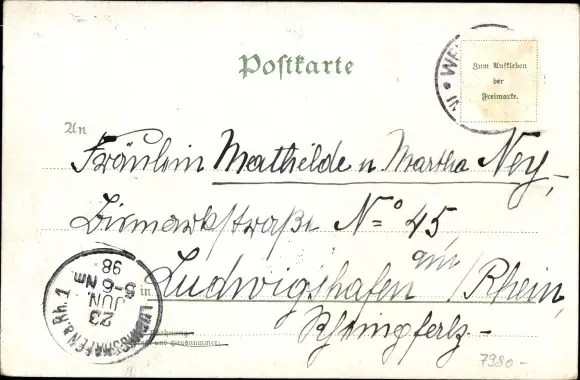 Postkarte
WE
IN
Zum Aufkleben
der
Freimarke.
An
Fräulein Mathilde u Martha Ney,
Bismarkstraße No 45
in Ludwigshafen am/Rhein,
Rheinpfalz-
LUDWIGSHAFEN a. Rh. 1
23
JUN.
5-6 Nm
98
Wohnung
und Hausnummer)
7980-